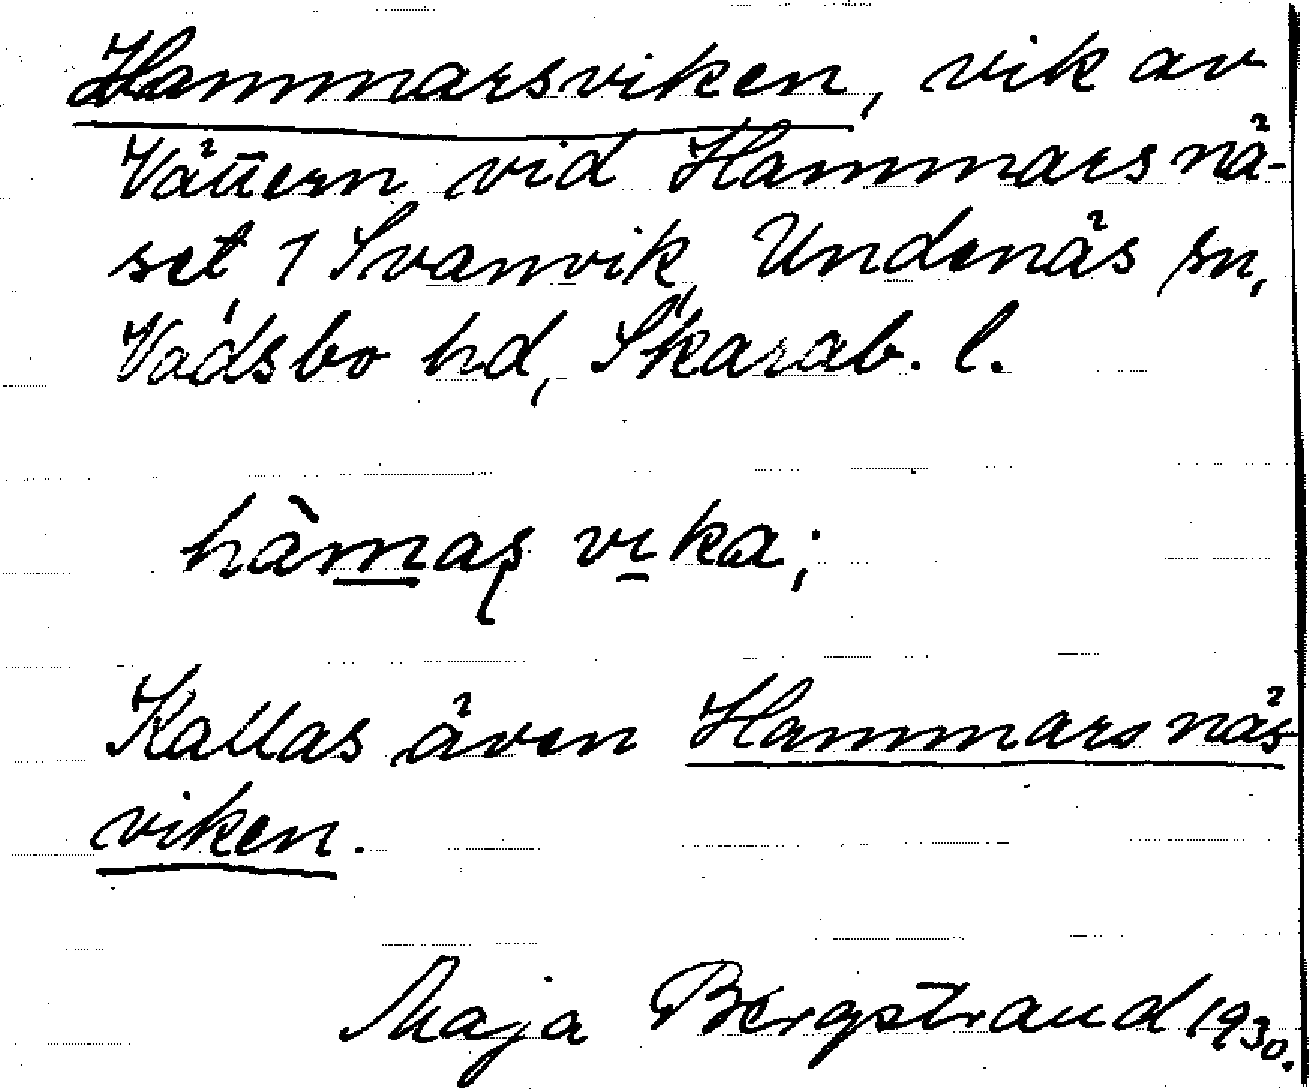 Hammarsviken, vik av
Vättern vid Hammarsnä-
set i Svanvik, Undenäs sn,
Vadsbo hd, Skarab. l.
hàmas vika;
Kallas även Hammarsnäs
viken.
Maja Bergstrand 1930.